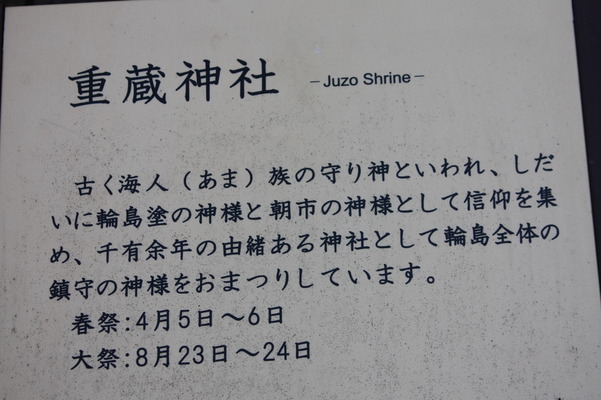 重蔵神社 －Juzo Shrine－
古く海人（あま）族の守り神といわれ、しだ
いに輪島塗の神様と朝市の神様として信仰を集
め、千有余年の由緒ある神社として輪島全体の
鎮守の神様をおまつりしています。
春祭:4月5日～6日
大祭:8月23日～24日